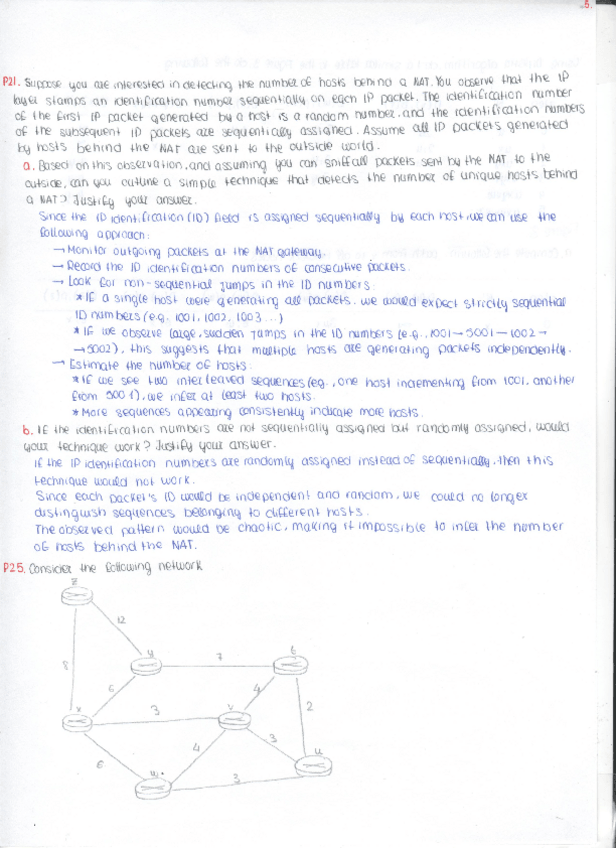 5.
P21. Suppose you are interested in detecting the number of hosts behind a NAT. You observe that the IP
layer stamps an identification number sequentially on each IP packet. The identification number
of the first IP packet generated by a host is a random number, and the identification numbers
of the subsequent ID packets are sequentially assigned. Assume all ID packets generated
by hosts behind the NAT are sent to the outside world.
a. Based on this observation, and assuming you can sniff all packets sent by the NAT to the
outside, can you outline a simple technique that detects the number of unique hosts behind
a NAT? Justify your answer.
Since the ID identification (ID) field is assigned sequentially by each host, we can use the
following approach:
→ Monitor outgoing packets at the NAT gateway.
→ Record the ID identification numbers of consecutive packets.
→ Look for non-sequential jumps in the ID numbers:
* If a single host were generating all packets, we would expect strictly sequential
ID numbers (e.g., 1001, 1002, 1003...)
* If we observe large, sudden jumps in the ID numbers (e.g., 1001 → 5001 → 1002 →
→ 5002), this suggests that multiple hosts are generating packets independently.
→ Estimate the number of hosts:
* If we see two interleaved sequences (eg., one host incrementing from 1001, another
from 5001), we infer at least two hosts.
* More sequences appearing consistently indicate more hosts.
b. If the identification numbers are not sequentially assigned but randomly assigned, would
your technique work? Justify your answer.
If the IP identification numbers are randomly assigned instead of sequentially, then this
technique would not work.
Since each packet's ID would be independent and random, we could no longer
distinguish sequences belonging to different hosts.
The observed pattern would be chaotic, making it impossible to infer the number
of hosts behind the NAT.
P25. Consider the following network
z
12
y
7
t
8
6
4
x
3
v
2
6
4
3
u
w
3